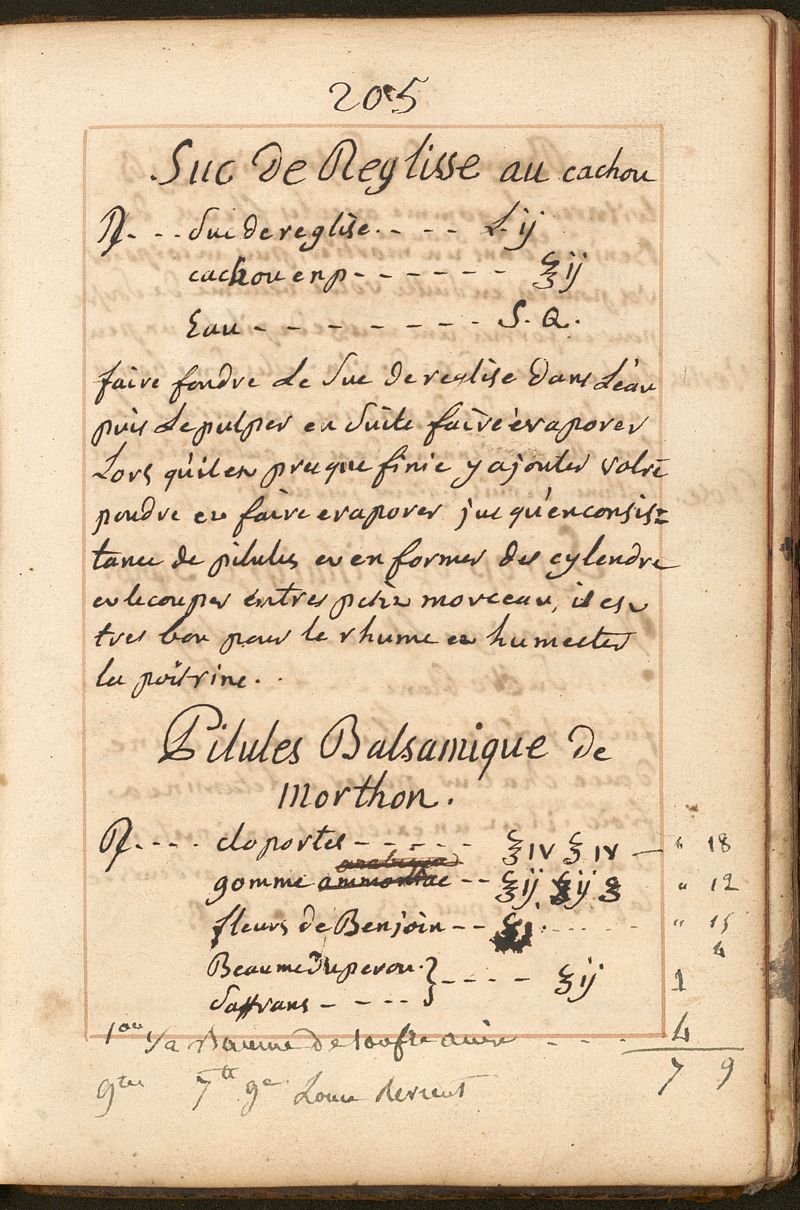 205
Suc De Reglisse au cachou
℞ - - - Suc de reglise - - - - L. ij
cachou en p - - - - - - ℥ ij
Eau - - - - - - - S. Q.
faire fondre Le Suc de reglise dans L'eau
puis Le pulper en Suite faire èvaporer
Lors qu'il est presque finie y ajouter votre
poudre et faire evaporer jus qu'en consis=
tance de pilules et en former des cylendre
et le couper entres petit morceau, il est
tres bon pour le rhume et humecter
la poitrine.
Pilules Balsamique de
Morthon.
℞ - - - - cloportes - - - - - ℥ IV ℥ IV — " 18
gomme ammoniac - - ℥ ij ℥ ij " 12
fleurs de Benjoin - - ℥ j. - - - - " 15
4
Beaume du perou } - - - - ʒ ij 1
Saffrans - - - -
1 on 1/2 Baume de soufre anisé - - - - 4
7 9
7 tt 9 Lonce Revient